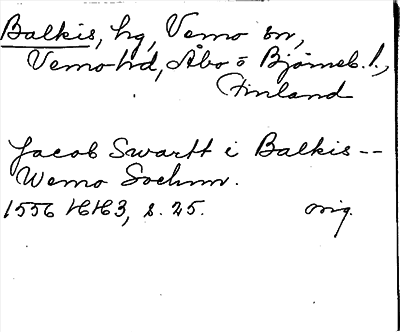 Balkis, hg, Vemo sn,
Vemo hd, Åbo o Björneb. l.,
Finland
Jacob Swartt i Balkis --
Wemo Sochnn.
1556 HH3, s. 25. orig.